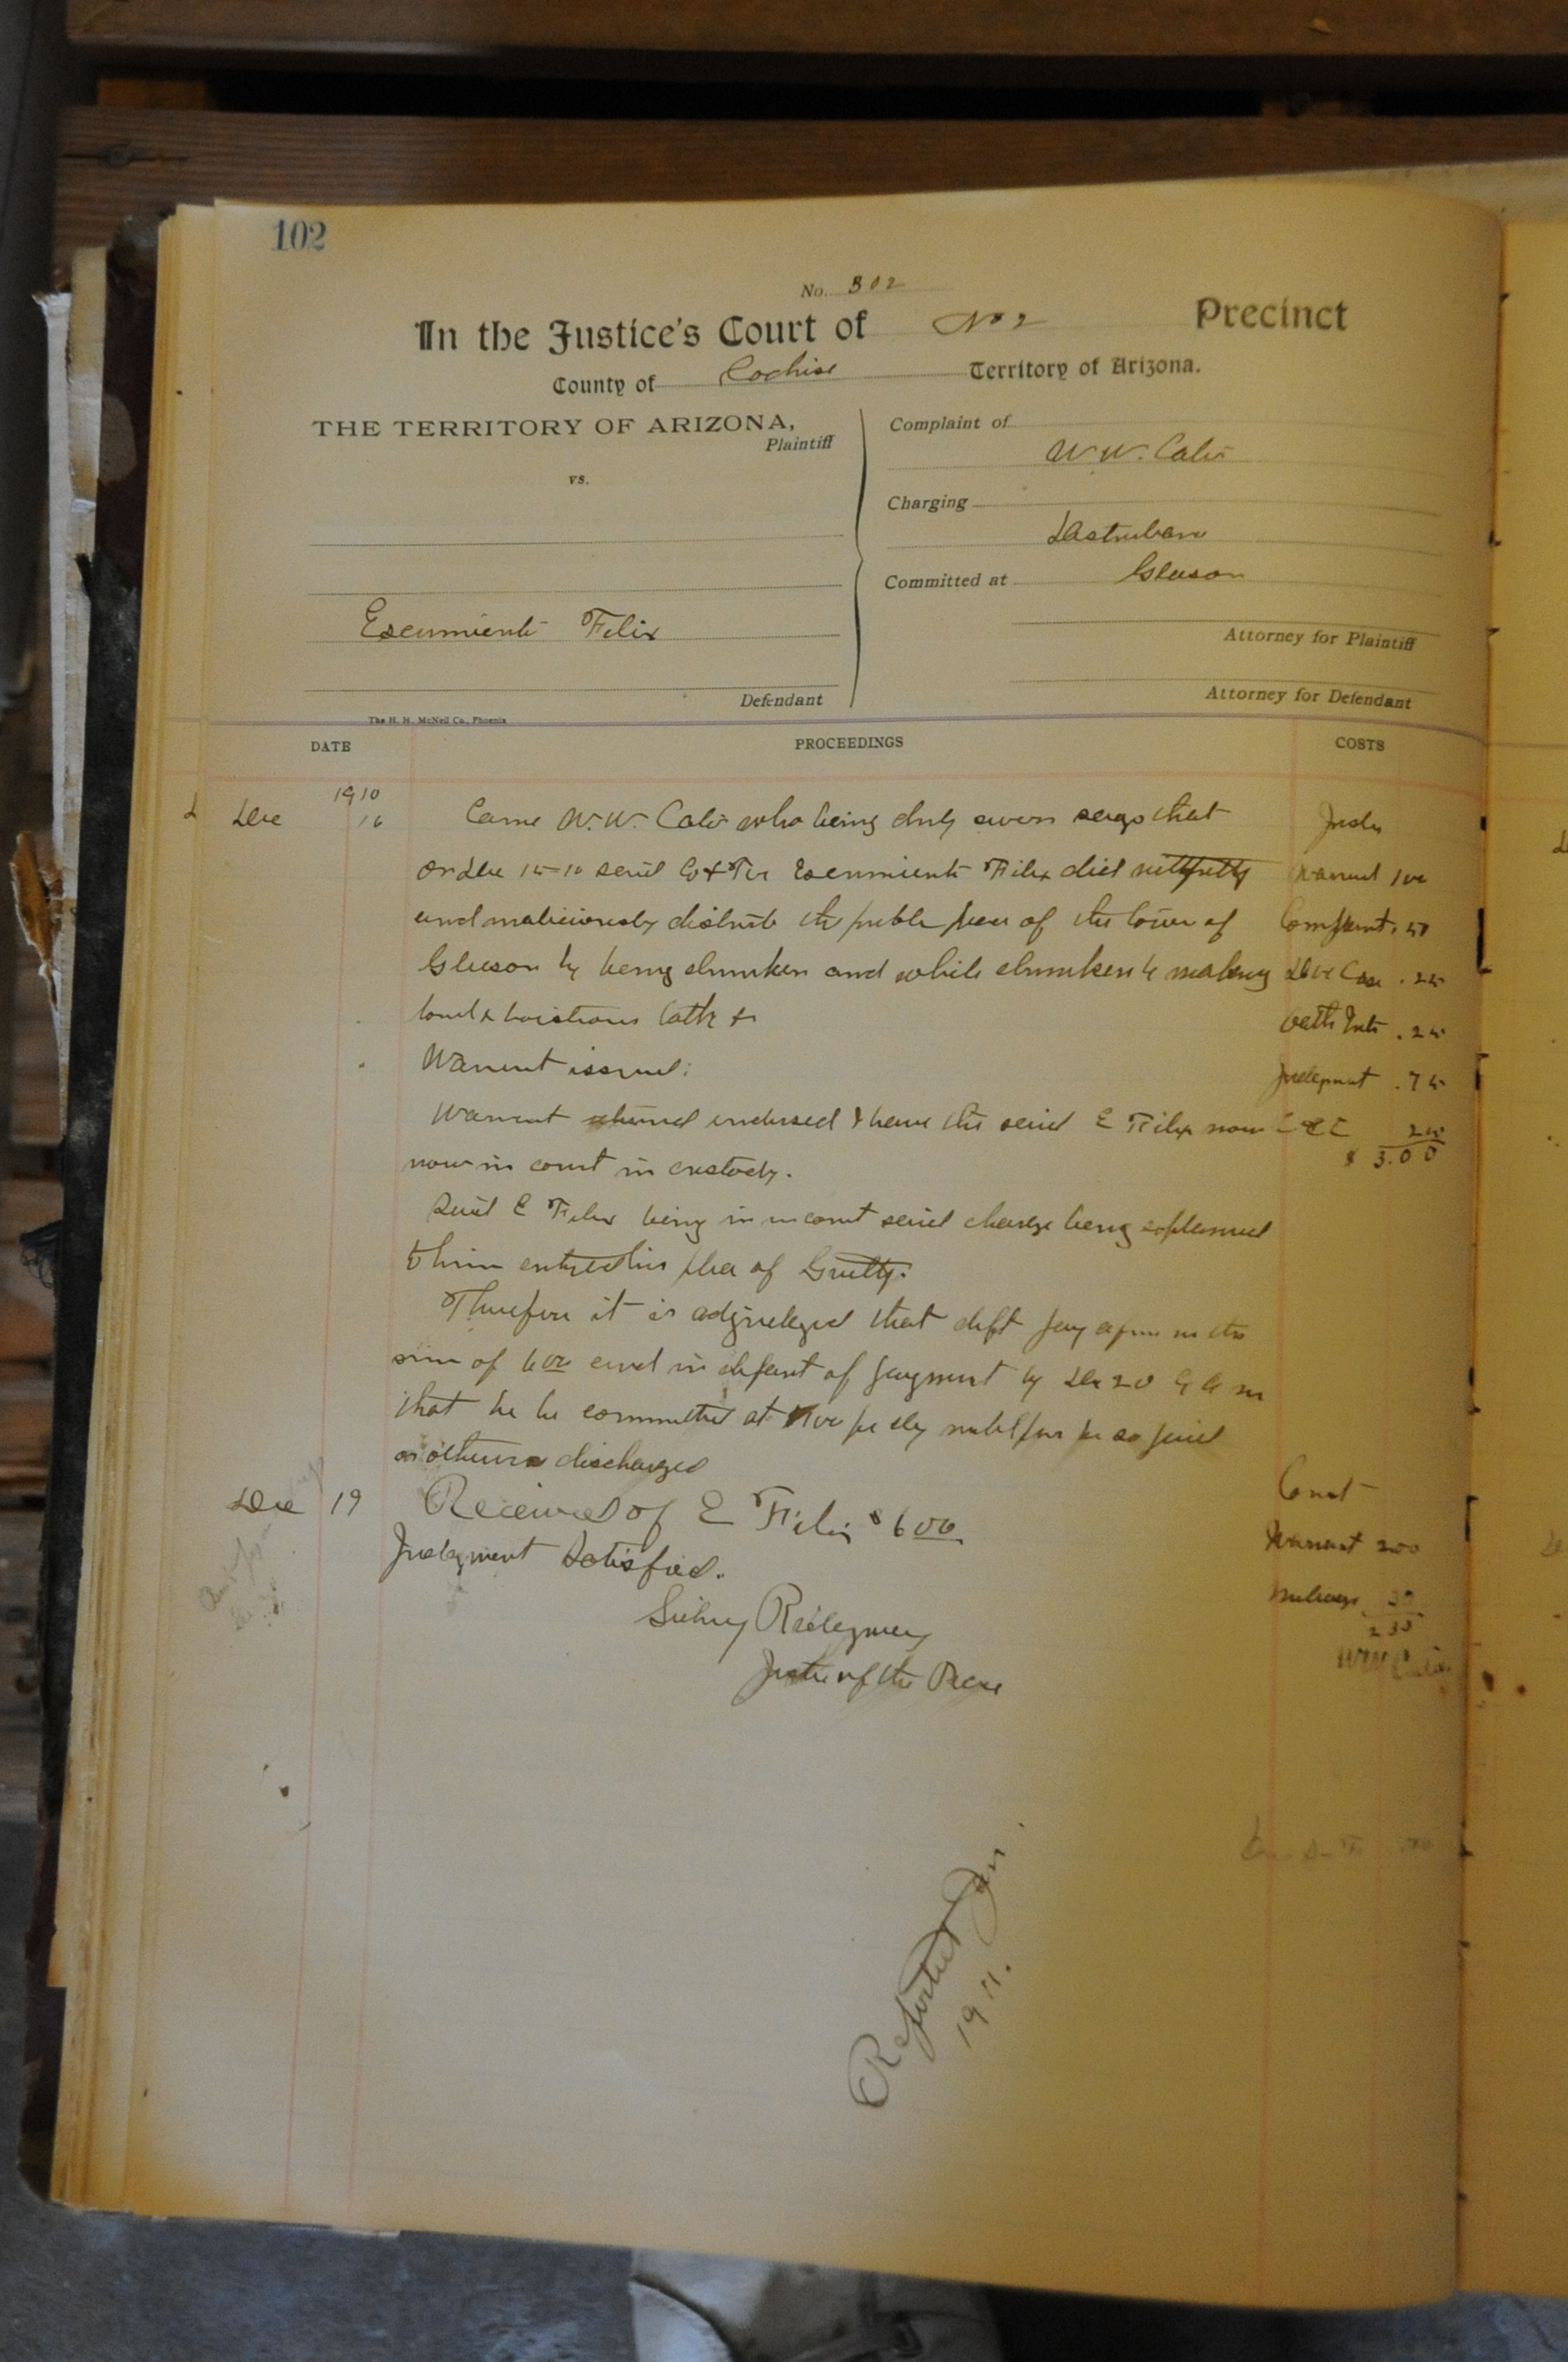 102
No. 302
In the Justice's Court of No 2 Precinct
County of Cochise Territory of Arizona.
THE TERRITORY OF ARIZONA,
Plaintiff
vs.
Escumienti Felix
Defendant
Complaint of
W. W. Calis
Charging
Committed at Gleason
Attorney for Plaintiff
Attorney for Defendant
The H. H. McNeil Co., Phoenix
DATE PROCEEDINGS COSTS
1910
Dec 16 Came W. W. Calis who being duly sworn says that
on Dec 15-10 said Co & Ter Escumienti Felix did willfully Warrant 1 00
and maliciously disturb the public peace of the town of Complaint .50
Gleeson by being drunken and while drunken by making Doc Case .25
loud & boistrous talk & Oath .25
Warrant issued: Judgment .75
Warrant returned endorsed I have the said E Felix now 25
now in court in custody. $ 3.00
Said E Felix being in court said charge being explained
to him entered his plea of Guilty.
Therefore it is adjudged that deft pay a fine in the
sum of 6 00 and in default of payment by Dec 20
that he be committed at 1 00 per day until fine be so paid
or otherwise discharged
Dec 19 Received of E Felix $6 00
Judgment Satisfied.
Sidney Ridegway
Justice of the Peace
Const
Warrant 2 00
Mileage 30
2 30
Reported Jan
1911.